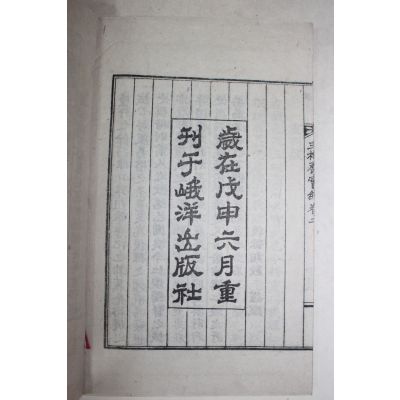 歲在戊申六月重
刋于峨洋出版社